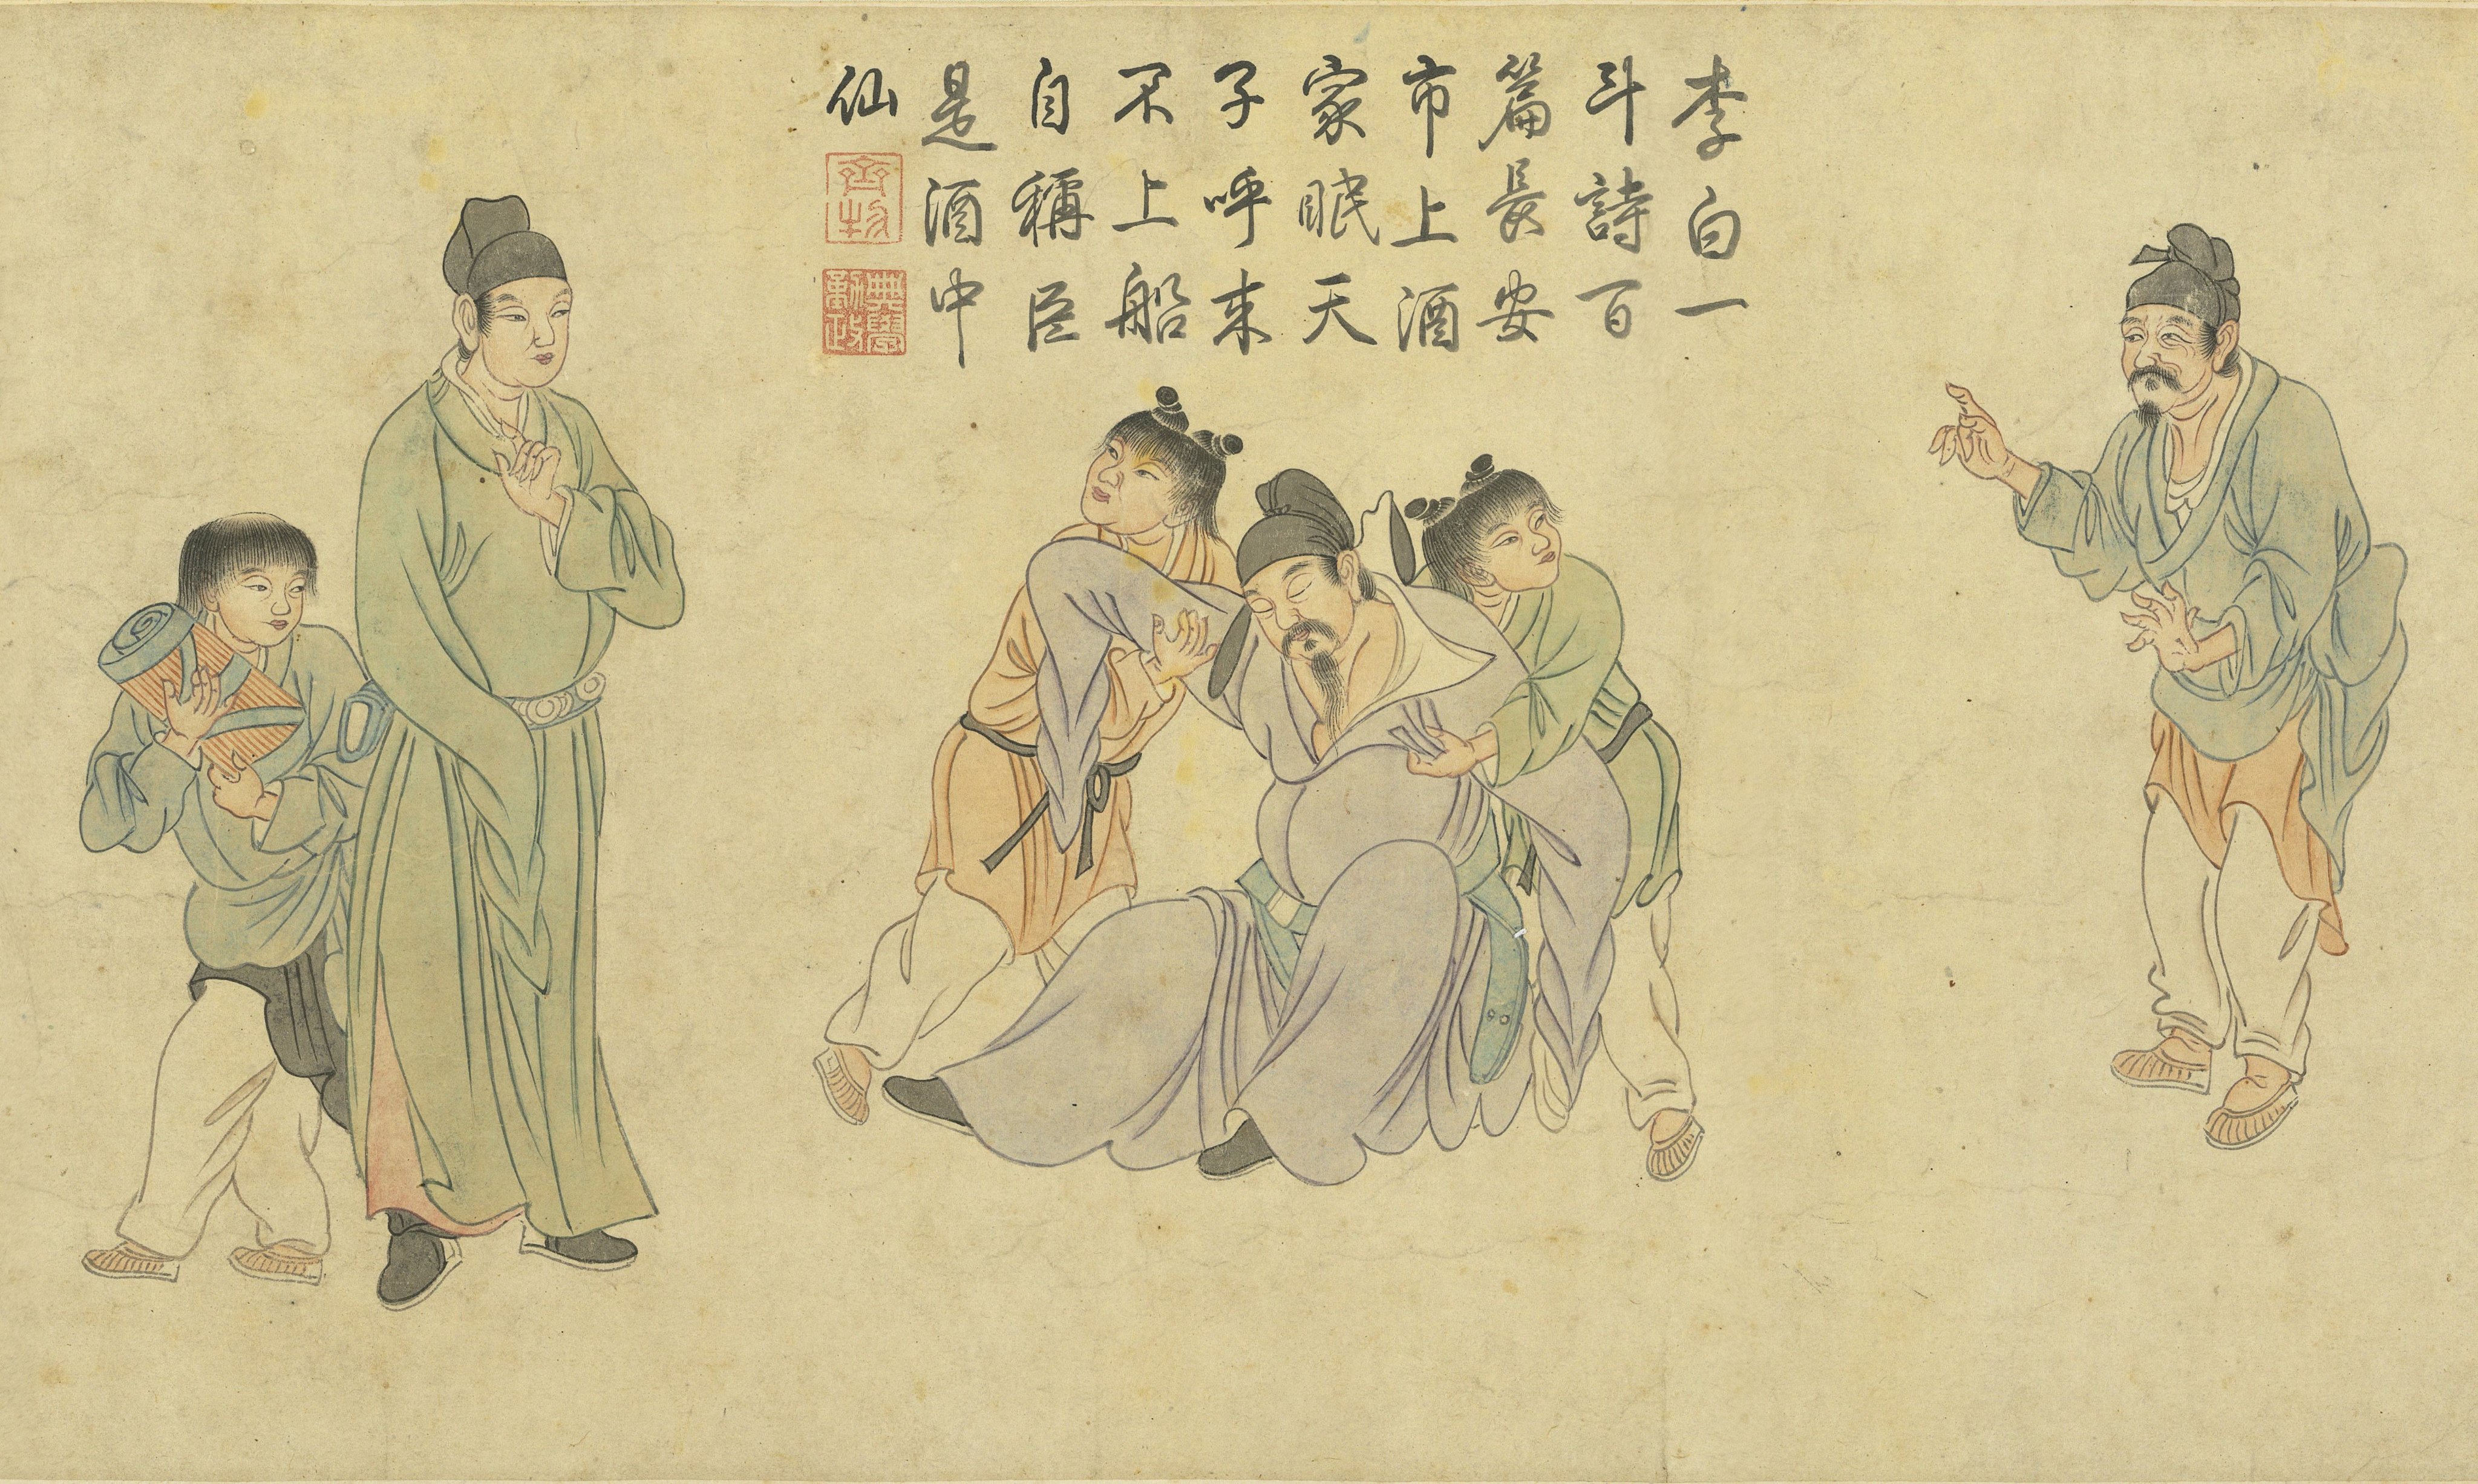 李白一
斗詩百
篇長安
市上酒
家眠天
子呼來
不上船
自稱臣
是酒中
仙
齊物